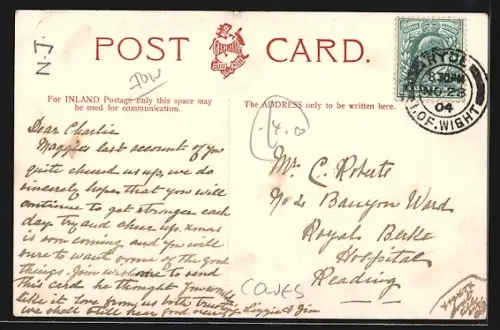 N.J.
POST CARD.
For INLAND Postage only this space may
be used for communication.
The ADDRESS only to be written here.
IOW
-4.0
RYDE
8.30PM
NO 28
04
I.OF.WIGHT
Dear Charlie
Maggies last account of you
quite cheered us up, we do
sincerely hope that you will
continue to get stronger each
day try and cheer up. Xmas
is soon coming and you will
sure to want some of the good
things. Jim wished me to send
this card he thought you would
like it Love from us both trusting
we shall still hear good news Lizzie & Jim
Mr C. Roberts
No 2 Banyon Ward
Royal Berks
Hospital
Reading
COWES